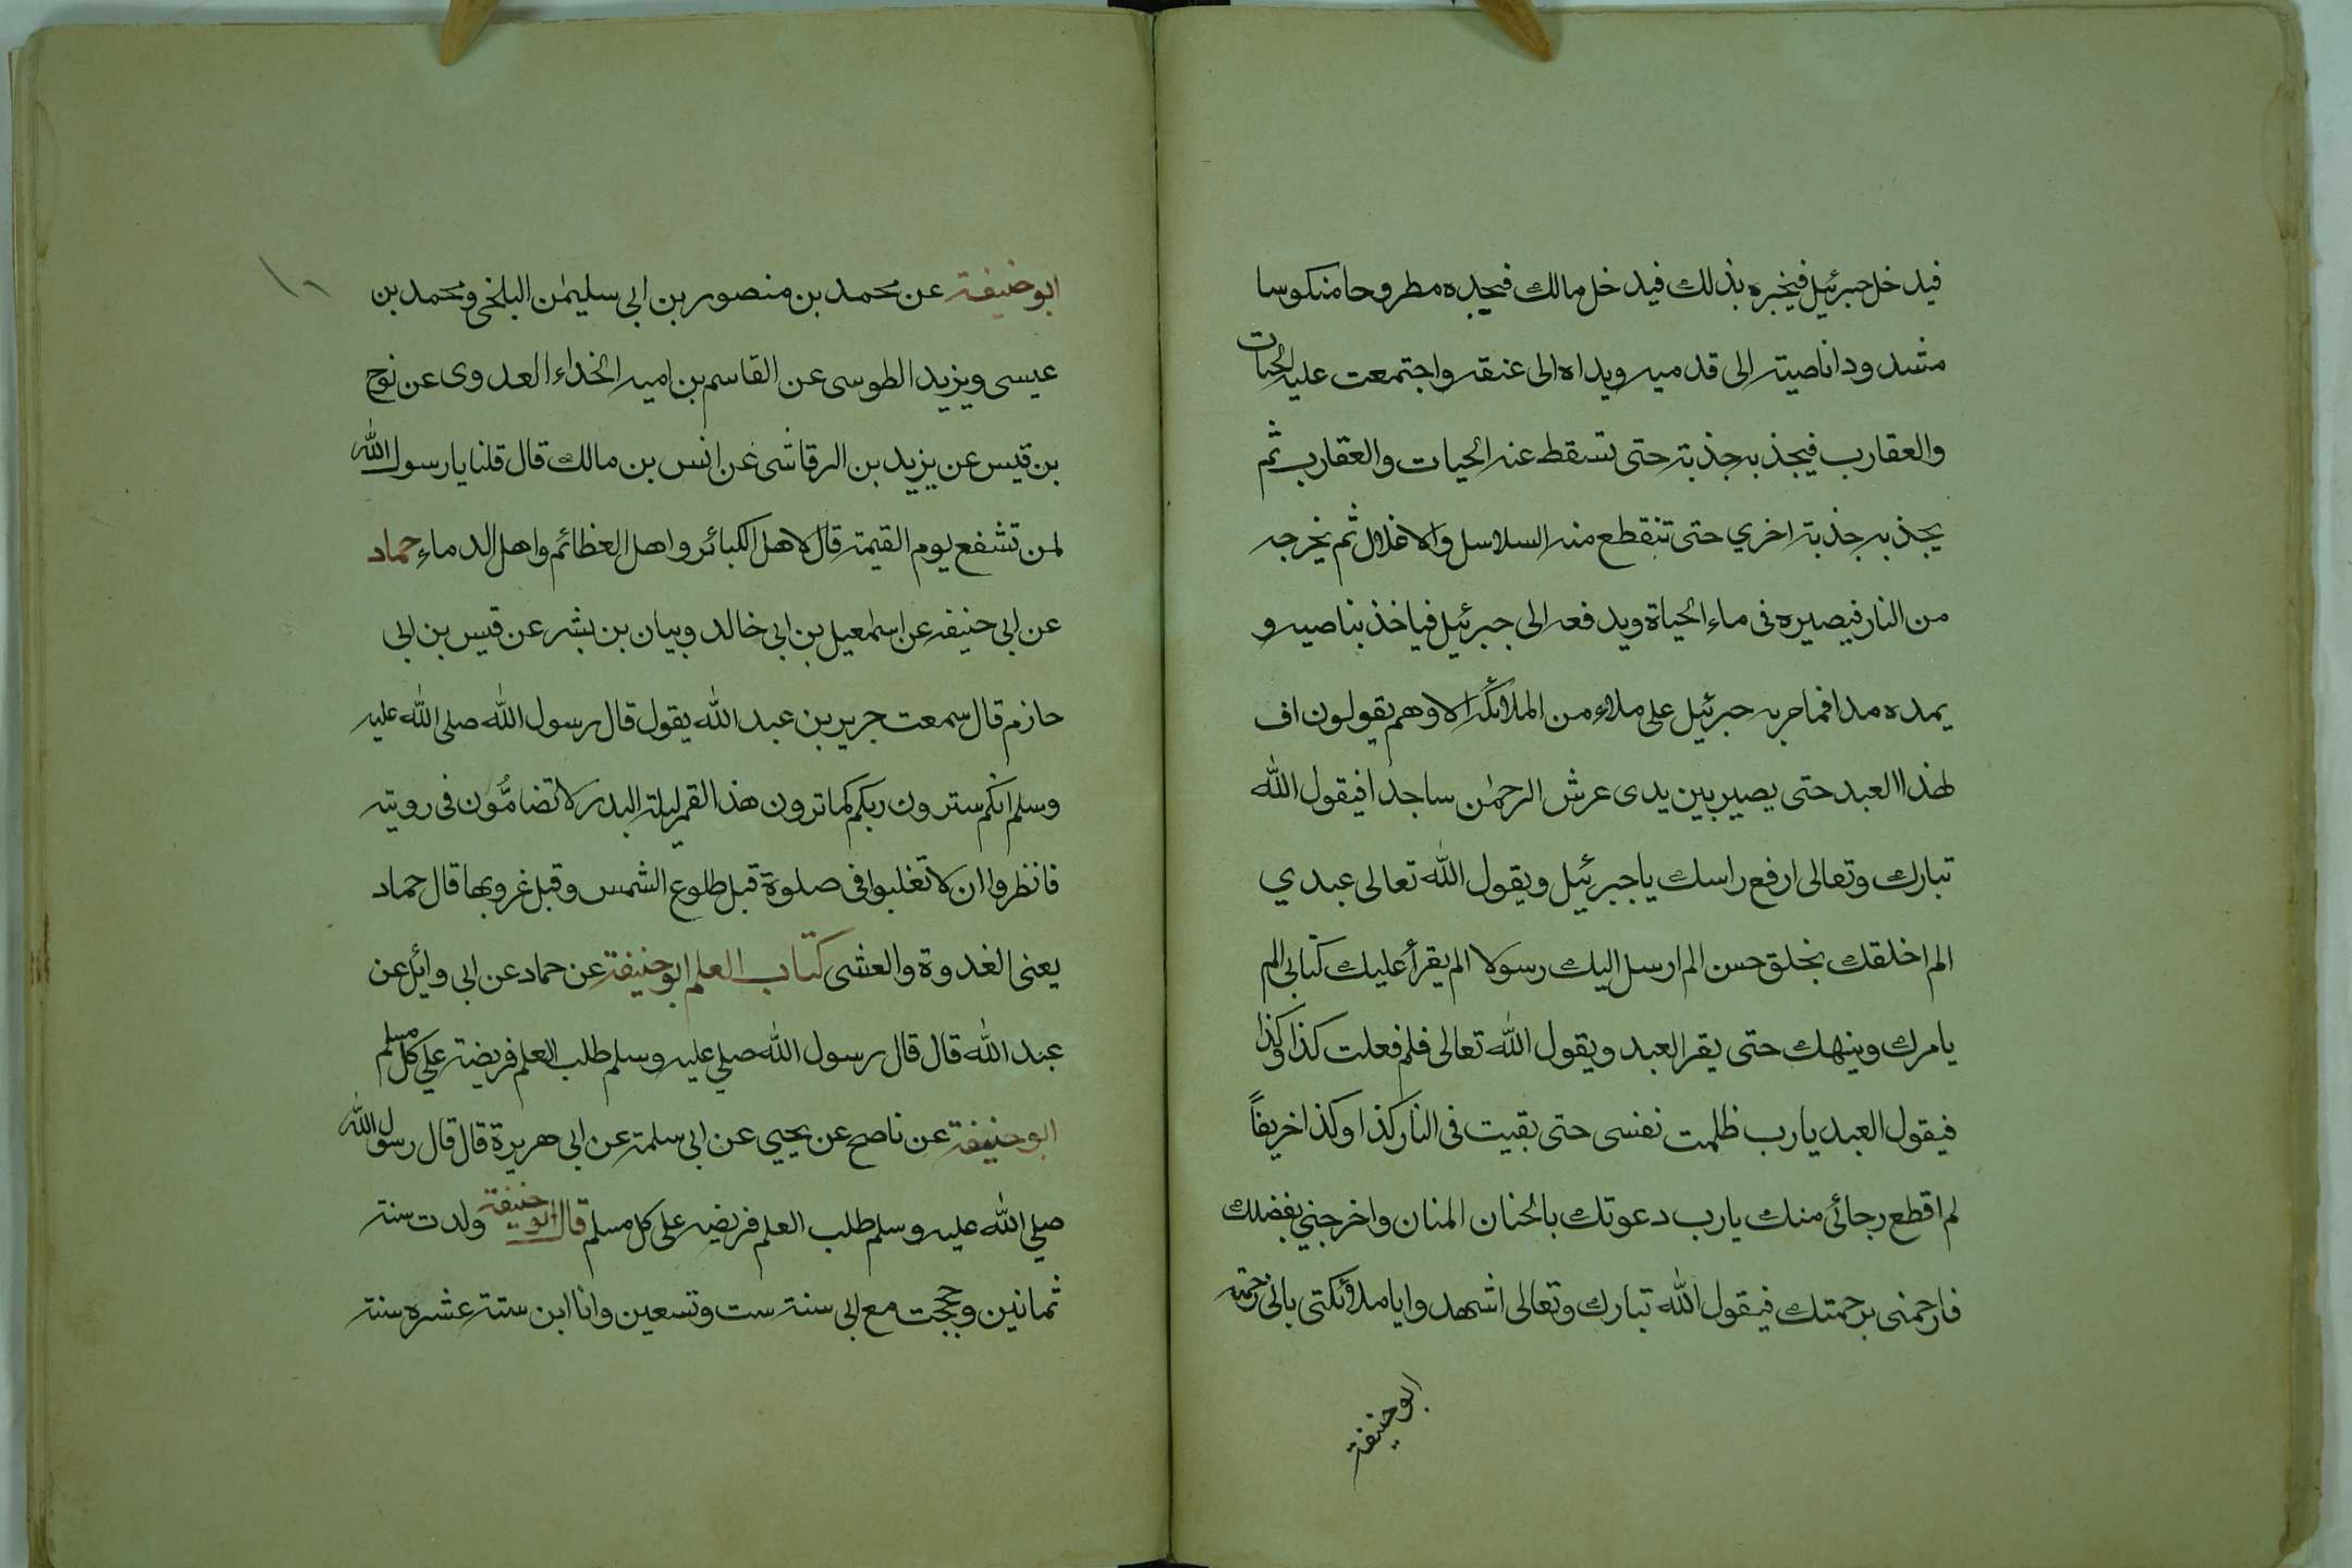 فيدخل جبرئيل فيخبره بذلك فيدخل مالك فيجده مطروحا منكوسا
مشدودا ناصيته الى قدميه ويداه الى عنقه واجتمعت عليه الحيات
والعقارب فيجذبه جذبة حتى تسقط عنه الحيات والعقارب ثم
يجذبه جذبة اخري حتى تنقطع منه السلاسل والاغلال ثم يخرجه
من النار فيصيره فى ماء الحياة ويدفعه الى جبرئيل فياخذ بناصيه و
يمده مدا فمامر به جبرئيل على ملاء من الملائكة الا وهم يقولون اف
لهذا العبد حتى يصير بين يدى عرش الرحمٰن ساجدا فيقول الله
تبارك وتعالى ارفع راسك يا جبرئيل ويقول الله تعالى عبدي
الم اخلقك بخلق حسن الم ارسل اليك رسولا الم يقرأ عليك كتابى الم
يامرك وينهك حتى يقر العبد ويقول الله تعالى فلم فعلت كذا وكذا
فيقول العبد يارب ظلمت نفسى حتى بقيت فى النار كذا وكذا خريفاً
لم اقطع رجائى منك يارب دعوتك بالحنان المنان واخرجني بفضلك
فارحمنى برحمتك فيقول الله تبارك وتعالى اشهدوا يا ملائكتى بانى رحمته
ابو حنيفة
١٦
ابو حنيفة عن محمد بن منصور بن ابى سليمٰن البلخى ومحمد بن
عيسى ويزيد الطوسى عن القاسم بن اميه الحذاء العدوى عن نوح
بن قيس عن يزيد بن الرقاشى عن انس بن مالك قال قلنا يا رسول الله
لمن تشفع يوم القيمة قال لاهل الكبائر واهل العظائم واهل الدماء حماد
عن ابى حنيفه عن اسمٰعيل بن ابى خالد وبيان بن بشر عن قيس بن ابى
حازم قال سمعت جرير بن عبد الله يقول قال رسول الله صلى الله عليه
وسلم انكم سترون ربكم كما ترون هذا القمر ليلة البدر لا تضامُّون فى رويته
فانظروا ان لا تغلبوا فى صلوة قبل طلوع الشمس وقبل غروبها قال حماد
يعنى الغدوة والعشى كتاب العلم ابو حنيفة عن حماد عن ابى وائل عن
عبد الله قال قال رسول الله صلي عليه وسلم طلب العلم فريضة علي كل مسلم
ابو حنيفة عن ناصح عن يحيي عن ابى سلمة عن ابى هريرة قال قال رسول الله
صلي الله عليه وسلم طلب العلم فريضه على كل مسلم قال ابو حنيفة ولدت سنة
ثمانين وحججت مع ابى سنة ست وتسعين وانا ابن ستة عشره سنة